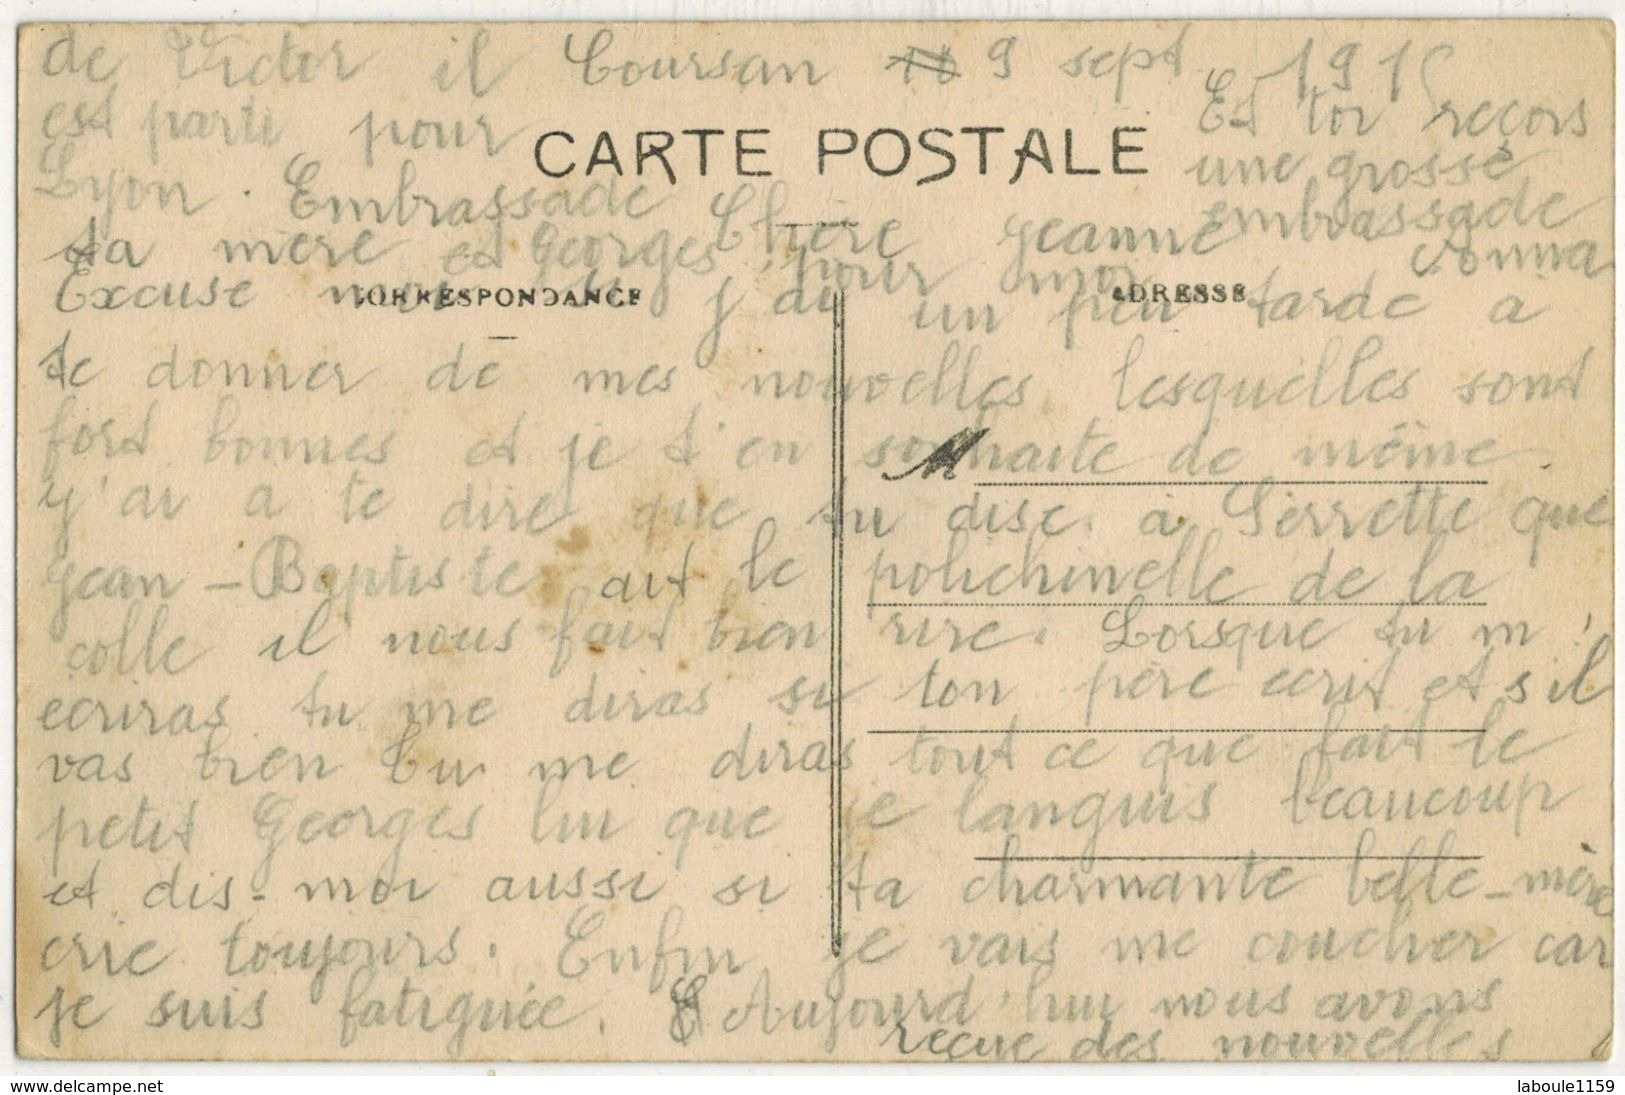 de Victor il Coursan 9 sept 191
est parti pour
Lyon. Embrassade
ta mère et Georges pour moi
CARTE POSTALE
Et toi reçois
une grosse
embrassade
Chère Jeanne
CORRESPONDANCE
ADRESSE
Excuse moi si j'ai un peu tarde a
te donner de mes nouvelles lesquelles sont
fort bonnes et je t'en souhaite de même.
M
j'ai a te dire que tu dise a Serrette que
Jean-Baptiste ait le polichinelle de la
colle il nous fait bien rire. Lorsque tu m'
ecriras tu me diras si ton père ecrit et s il
vas bien tu me diras tout ce que fait le
petit Georges lui que je languis beaucoup
et dis-moi aussi si ta charmante belle-mère
crie toujours. Enfin je vais me coucher car
je suis fatiguée. Aujourd'hui nous avons
reçue des nouvelles
laboule1159